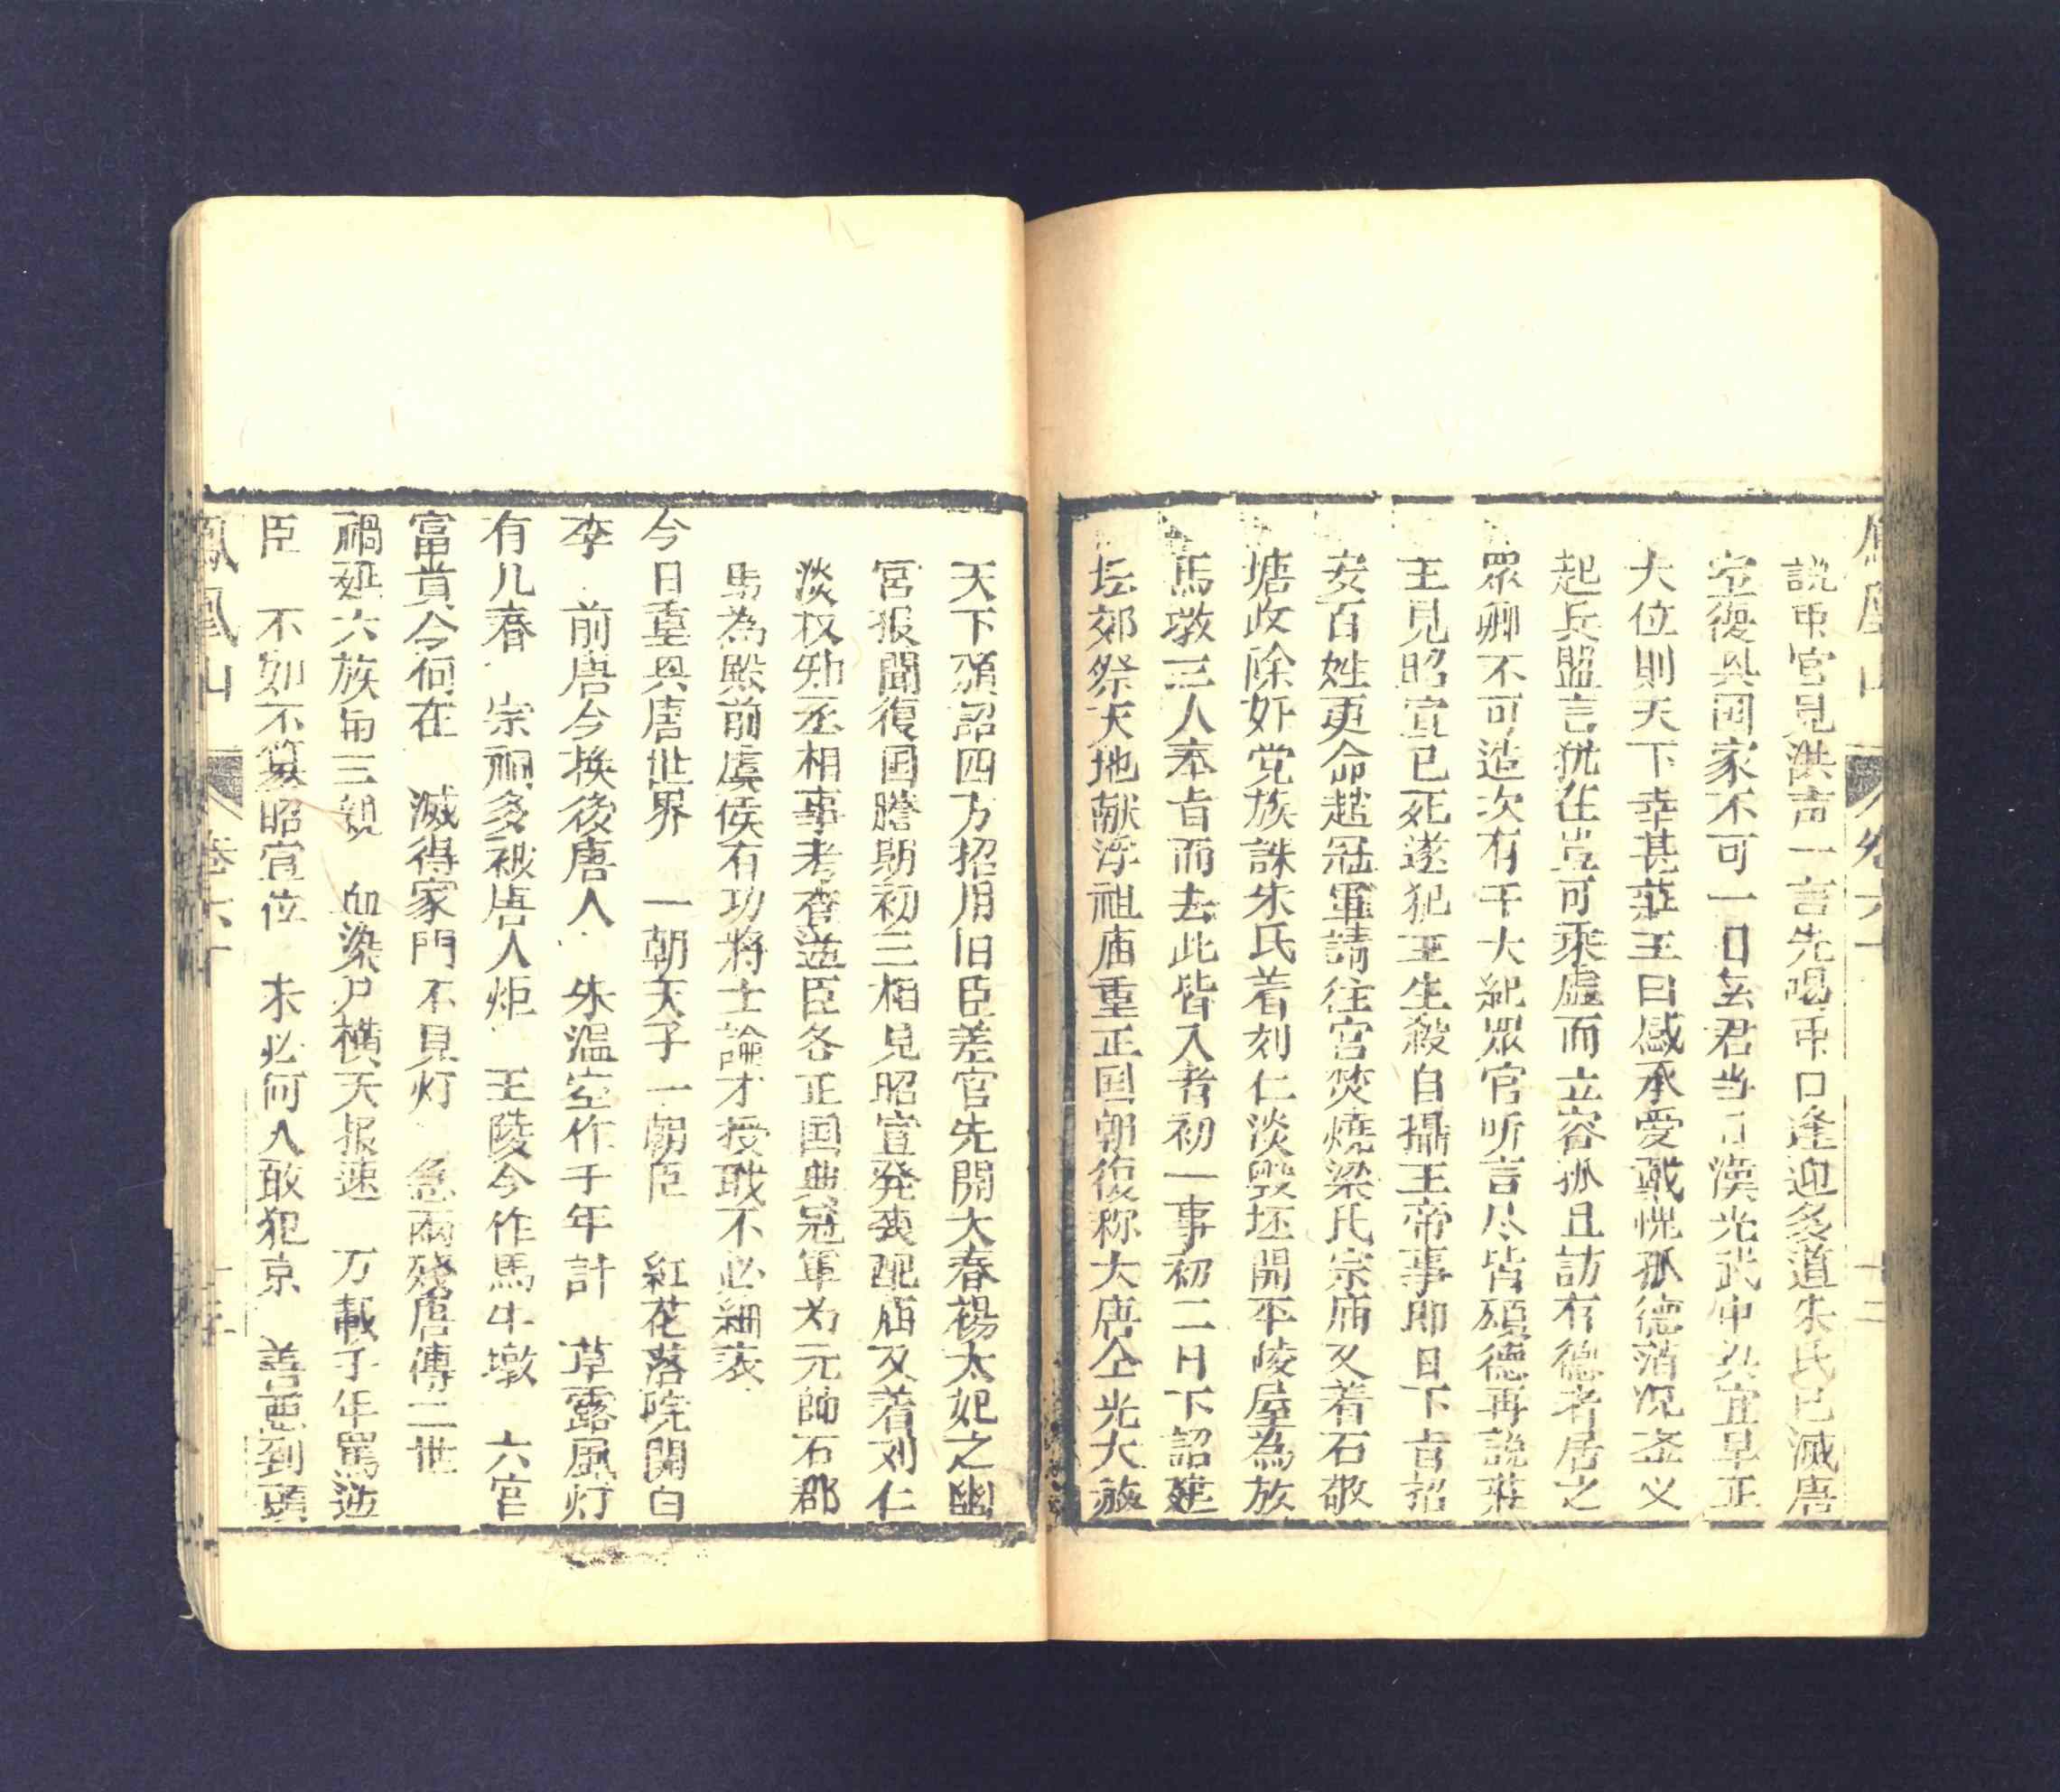 鳳凰山 卷六十 十二
說 官見洪声一言先喝 口逢迎多道朱氏已滅唐
室復兴囯家不可一日无君当 漢光武中兴宜早正
大位則天下幸甚莊王曰感承爱戴恍孤德浅况 义
起兵盟言犹在豈可乘虛而立容孤且訪有德者居之
眾卿不可造次有干大紀眾官听言尽皆頌德再說莊
王見昭宣已死遂犯王生殺自攝王帝事即日下旨招
安百姓更命趙冠軍請往宮焚燒梁氏宗庙又着石敬
塘政除奸党族誅朱氏着刻仁淡毀坯開平崚屋為放
馬墩三人奉旨而去此皆入者初一事初二日下詔建
坛郊祭天地献浮祖庙重正囯朝復称大唐仝光大赦
天下頒詔四方招用旧臣差官先開大春楊太妃之幽
宮报聞復囯謄期初三相見昭宣発丧配庙又着刘仁
淡权知丞相事考查逆臣各正国典冠軍为元帥石郡
馬為殿前虞侯有功將士論才授戢不必細表
今日重兴唐世界 一朝天子一朝臣 紅花落琓開白
李 前唐今换後唐人 朱溫空作千年計 草露風灯
有几春 宗祠多被唐人炬 王陵今作馬牛墩 六官
富貴今何在 滅得家門不見灯 急雨殘唐傳二世
禍延六族毎三親 血染尸橫天报速 万載千年罵逆
臣 不如不篡昭宣位 未必何人敢犯京 善悪到頭
鳳凰山 卷六十 十三